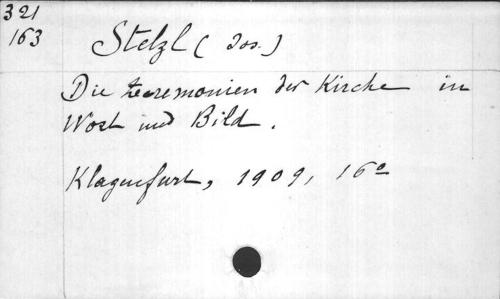 321
163
Stelzl (Jos.)
Die Zeremonien der Kirche in
Wort und Bild.
Klagenfurt, 1909, 16°